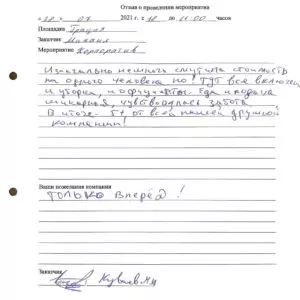 Отзыв о проведении мероприятия
2021 г. с 11:00 часов
Площадка Грация
Заказчик Михаил
Мероприятие Корпоратив
Изначально немного смутила стоимость
на одного человека но! Тут все включено
и уборка, и фрукты. Еда и подача
шикарная, чувствовалась забота
В итоге - 5+ от всей нашей дружной
компании!
Ваши пожелания компании
ТОЛЬКО Вперёд!
Заказчик